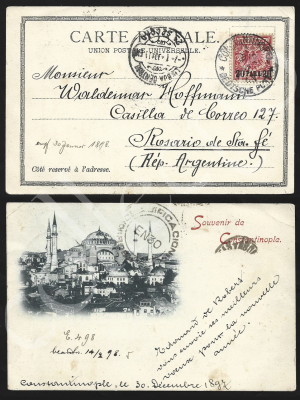 CARTE POSTALE.
UNION POSTALE UNIVERSELLE.
Monsieur
Waldemar Hoffmann
Casilla de Correo 127.
Rosario de Sta. Fé
(Rép. Argentine)
30 Janvier 1898
Côté reservé à l'adresse.
CONSTANTINOPEL
DEUTSCHE POST
Souvenir de
Constantinople.
ENE 30
de Robert
vous envoie ses meilleurs
voeux pour la nouvelle
année.
E. 498
14/2 98.
Constantinople, le 30 Décembre 1897